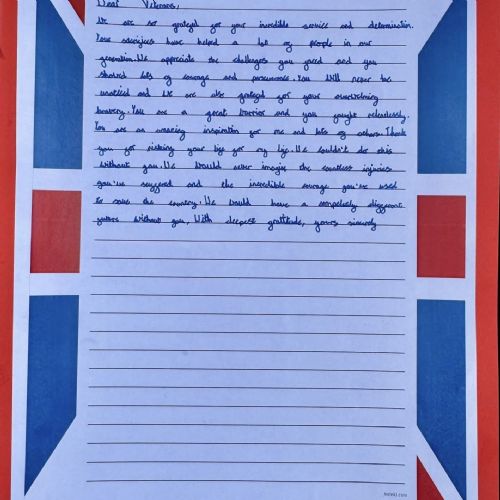 Dear Veterans,
We are so grateful for your incredible service and determination.
Your sacrifices have helped a lot of people in our
generation. We appreciate the challenges you faced and you
showed lots of courage and perseverance. You will never be
unnoticed and we are also grateful for your overwhelming
bravery. You are a great warrior and you fought relentlessly.
You are an amazing inspiration for me and lots of others. Thank
you for risking your life for my life. We couldn't do this
without you. We would never imagine the countless injuries
you've suffered and the incredible courage you've used
to save the country. We would have a completely different
future without you, With deepest gratitude, yours sincerely